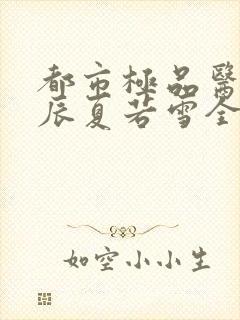 都市極品醫
辰夏若雪全
如空小小生